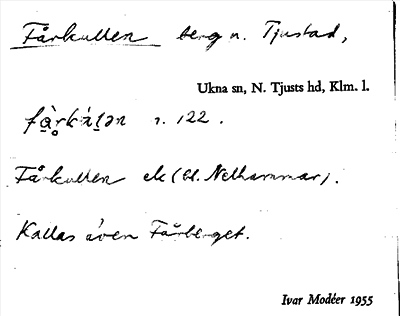 Fårkullen berg n. Tjustad,
Ukna sn, N. Tjusts hd, Klm. l.
r. 122.
Fårkullen ek (El. Nelhammar).
Kallas även Fårberget.
Ivar Modéer 1955